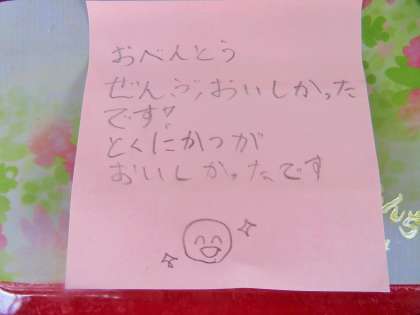 おべんとう
ぜんぶ、おいしかった
です!
とくにかつが
おいしかったです